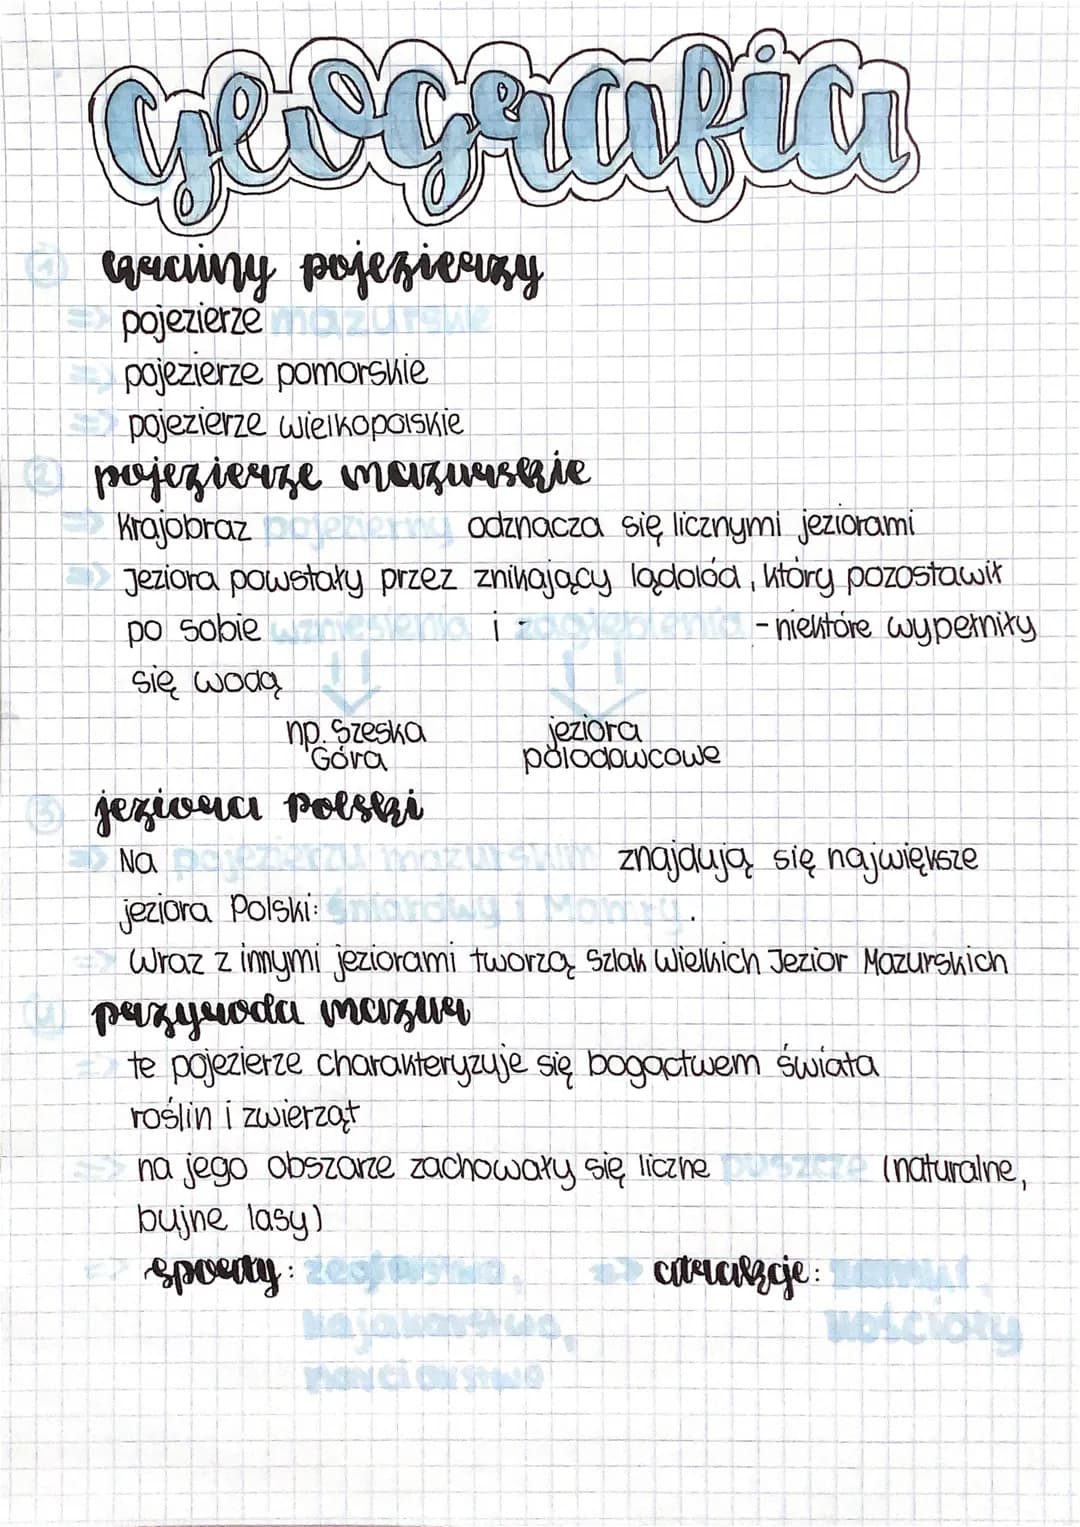 Geografia
① krainy pojezierzy
=> pojezierze mazurskie
=> pojezierze pomorskie
=> pojezierze wielkopolskie
② pojezierze mazurskie
=> Krajobraz pojezierny odznacza się licznymi jeziorami
=> Jeziora powstały przez znikający lądolód, który pozostawił
po sobie wzniesienia i zagłębienia - niektóre wypełniły
się wodą
np. Szeska jeziora
Góra polodowcowe
③ jeziora Polski
=> Na pojezierzu mazurskim znajdują się największe
jeziora Polski: Śniardwy i Mamry.
=> Wraz z innymi jeziorami tworzą Szlak Wielkich Jezior Mazurskich
④ przyroda mazur
=> te pojezierze charakteryzuje się bogactwem świata
roślin i zwierząt
=> na jego obszarze zachowały się liczne puszcze (naturalne,
bujne lasy)
=> sporty: żeglarstwo, => atrakcje: zamki,
kajakarstwo, kościoły
narciarstwo